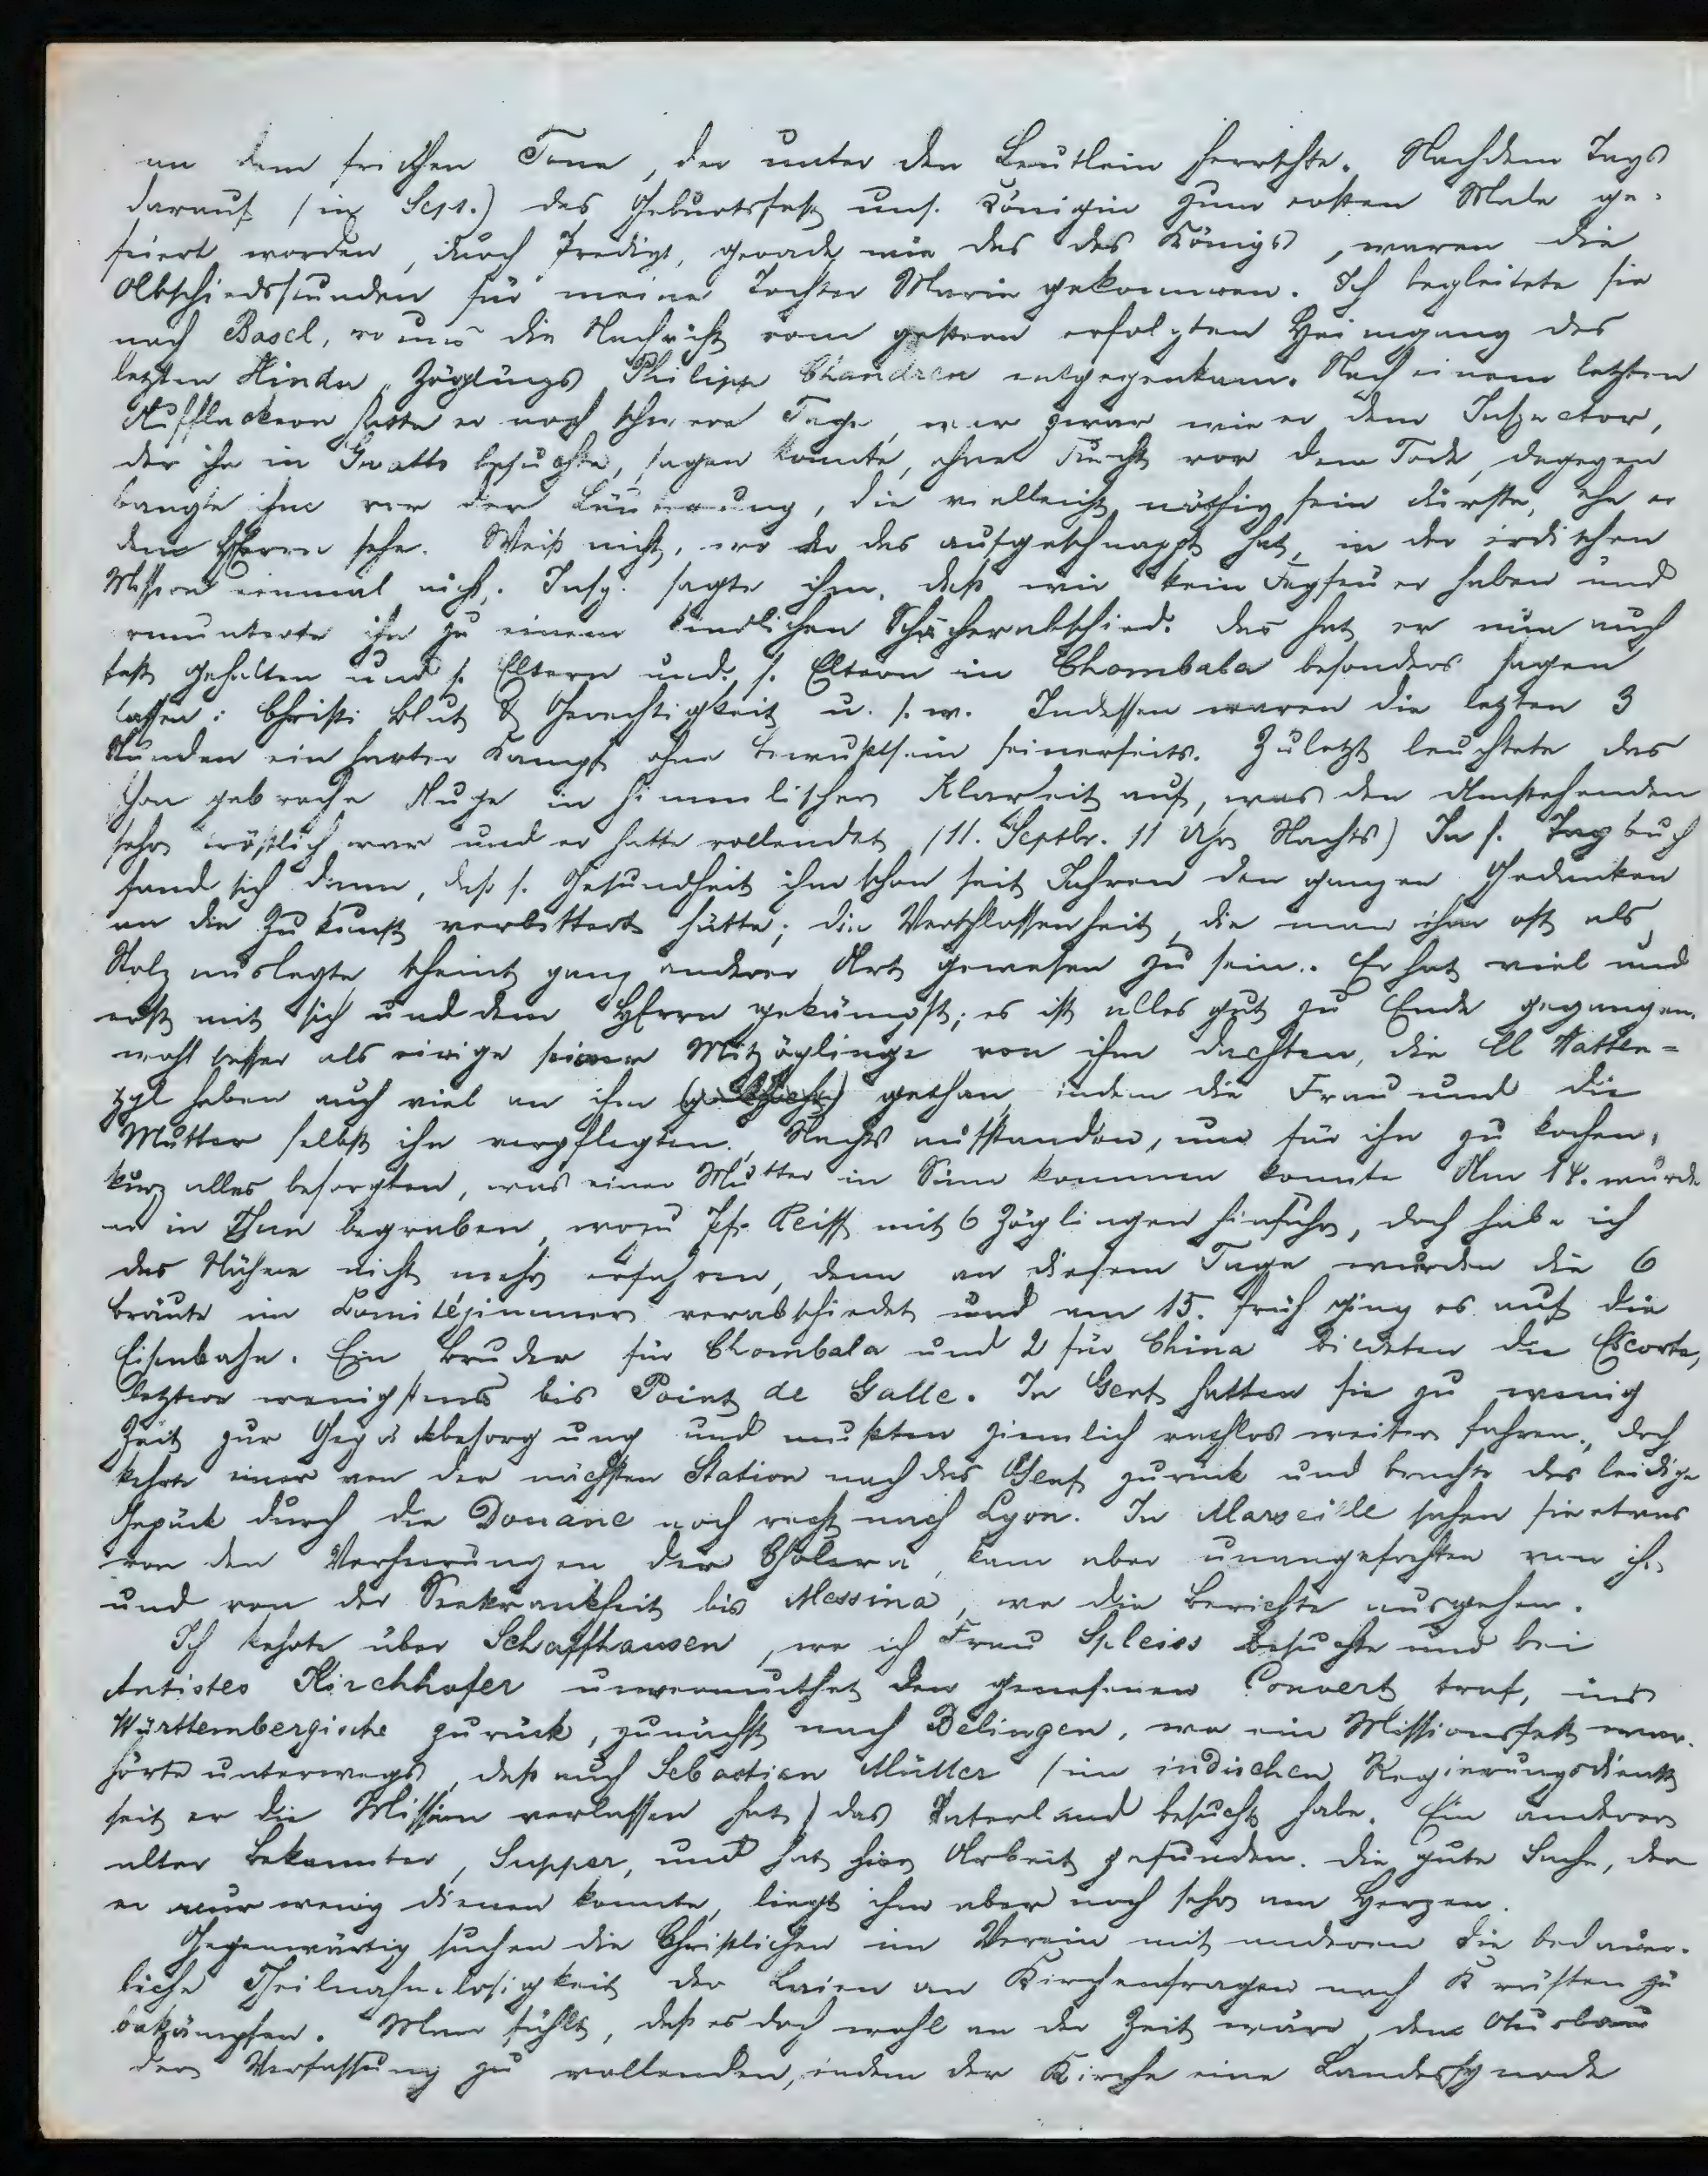 an dem frischen Tone, der unter den Leutlein herrschte. Nachdem Tags
darauf (11 Sept.) das Geburtsfest uns. Königin zum ersten Male ge-
feiert worden, durch Predigt, gerade wie das des Königs, waren die
Abschiedsstunden für meine Tochter Marie gekommen. Ich begleitete sie
nach Basel, wo uns die Nachricht vom gestern erfolgten Heimgang des
letzten Hindu Zöglings Philipp Chandren entgegenkam. Nach einem letzten
Aufflackern hatte er noch schwere Tage, war zwar wie er dem Inspector,
der ihn in Gwatt besuchte, sagen konnte, ohne Furcht vor dem Tode, dagegen
bangte ihm vor der Läuterung, die vielleicht nöthig sein dürfte, ehe er
den HErrn sehe. Weiß nicht, wo er das aufgeschnappt hat, in der indischen
Mission einmal nicht. Insp. sagte ihm, daß wir kein Fegfeuer haben und
ermunterte ihn zu einem kindlichen Schächerabschied. Das hat er nun auch
fest gehalten und s. Eltern und s. Eltern in Chombala besonders sagen
lassen: Christi Blut & Gerechtigkeit u. s. w. Indessen waren die letzten 3
Stunden ein harter Kampf ohne Bewußtsein seinerseits. Zuletzt leuchtete das
schon gebrochne Auge in himmlischer Klarheit auf, was den Umstehenden
sehr tröstlich war und er hatte vollendet (11. Septbr. 11 Uhr Nachts) In s. Tagbuch
fand sich dann, daß s. Gesundheit ihm schon seit Jahren den ganzen Gedanken
an die Zukunft verbittert hatte; die Verschlossenheit, die man ihm oft als
Stolz auslegte, scheint ganz anderer Art gewesen zu sein. Er hat viel und
ernst mit sich und dem HErrn gekämpft; es ist alles gut zu Ende gegangen.
wohl besser als einige seiner Mitzöglinge von ihm dachten, die ll Watten-
wyl haben auch viel an ihm gethan, indem die Frau und die
Mutter selbst ihn verpflegten, Nachts aufstanden, um für ihn zu kochen,
kurz alles besorgten, was einer Mutter in Sinn kommen konnte Am 14. wurde
er in Thun begraben, wozu Pf. Reiff mit 6 Zöglingen hinfuhr, doch habe ich
das Nähere nicht mehr erfahren, denn an diesem Tage wurden die 6
Bräute im Comitézimmer verabschiedet und am 15. früh ging es auf die
Eisenbahn. Ein Bruder für Chombala und 2 für China bildeten die Escorte,
letztere wenigstens bis Point de Galle. In Genf hatten sie zu wenig
Zeit zur Gepäckbesorgung und mußten ziemlich rathlos weiter fahren, doch
kehrte einer von der nächsten Station nach Genf zurück und brachte das leidige
Gepäck durch die Douane noch recht nach Lyon. In Marseille sahen sie etwas
von den Verheerungen der Cholera, kam aber unangefochten von ihr
und von der Seekrankheit bis Messina, wo die Berichte ausgehen.
Ich kehrte über Schaffhausen, wo ich Frau Spleiss besuchte und bei
Antistes Kirchhofer unvermuthet den genesenen Convert traf, ins
Württembergische zurück, zunächst nach Balingen, wo ein Missionsfest war.
hörte unterwegs, daß auch Sebastian Müller (im indischen Regierungsdienst
seit er die Mission verlassen hat) das Vaterland besucht habe. Ein anderer
alter Bekannter, Supper, und hat hier Arbeit gefunden. Die gute Sache, der
er nur wenig dienen konnte, liegt ihm aber noch sehr am Herzen.
Gegenwärtig suchen die Christlichen im Verein mit anderen die bedauer-
liche Theilnahmlosigkeit der Laien an Kirchenfragen nach Kräften zu
bekämpfen. Man fühlt, daß es doch wohl an der Zeit wäre, den Ausbau
der Verfassung zu vollenden, indem der Kirche eine Landessynode